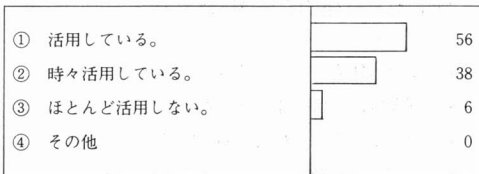 ① 活用している。 56
② 時々活用している。 38
③ ほとんど活用しない。 6
④ その他 0